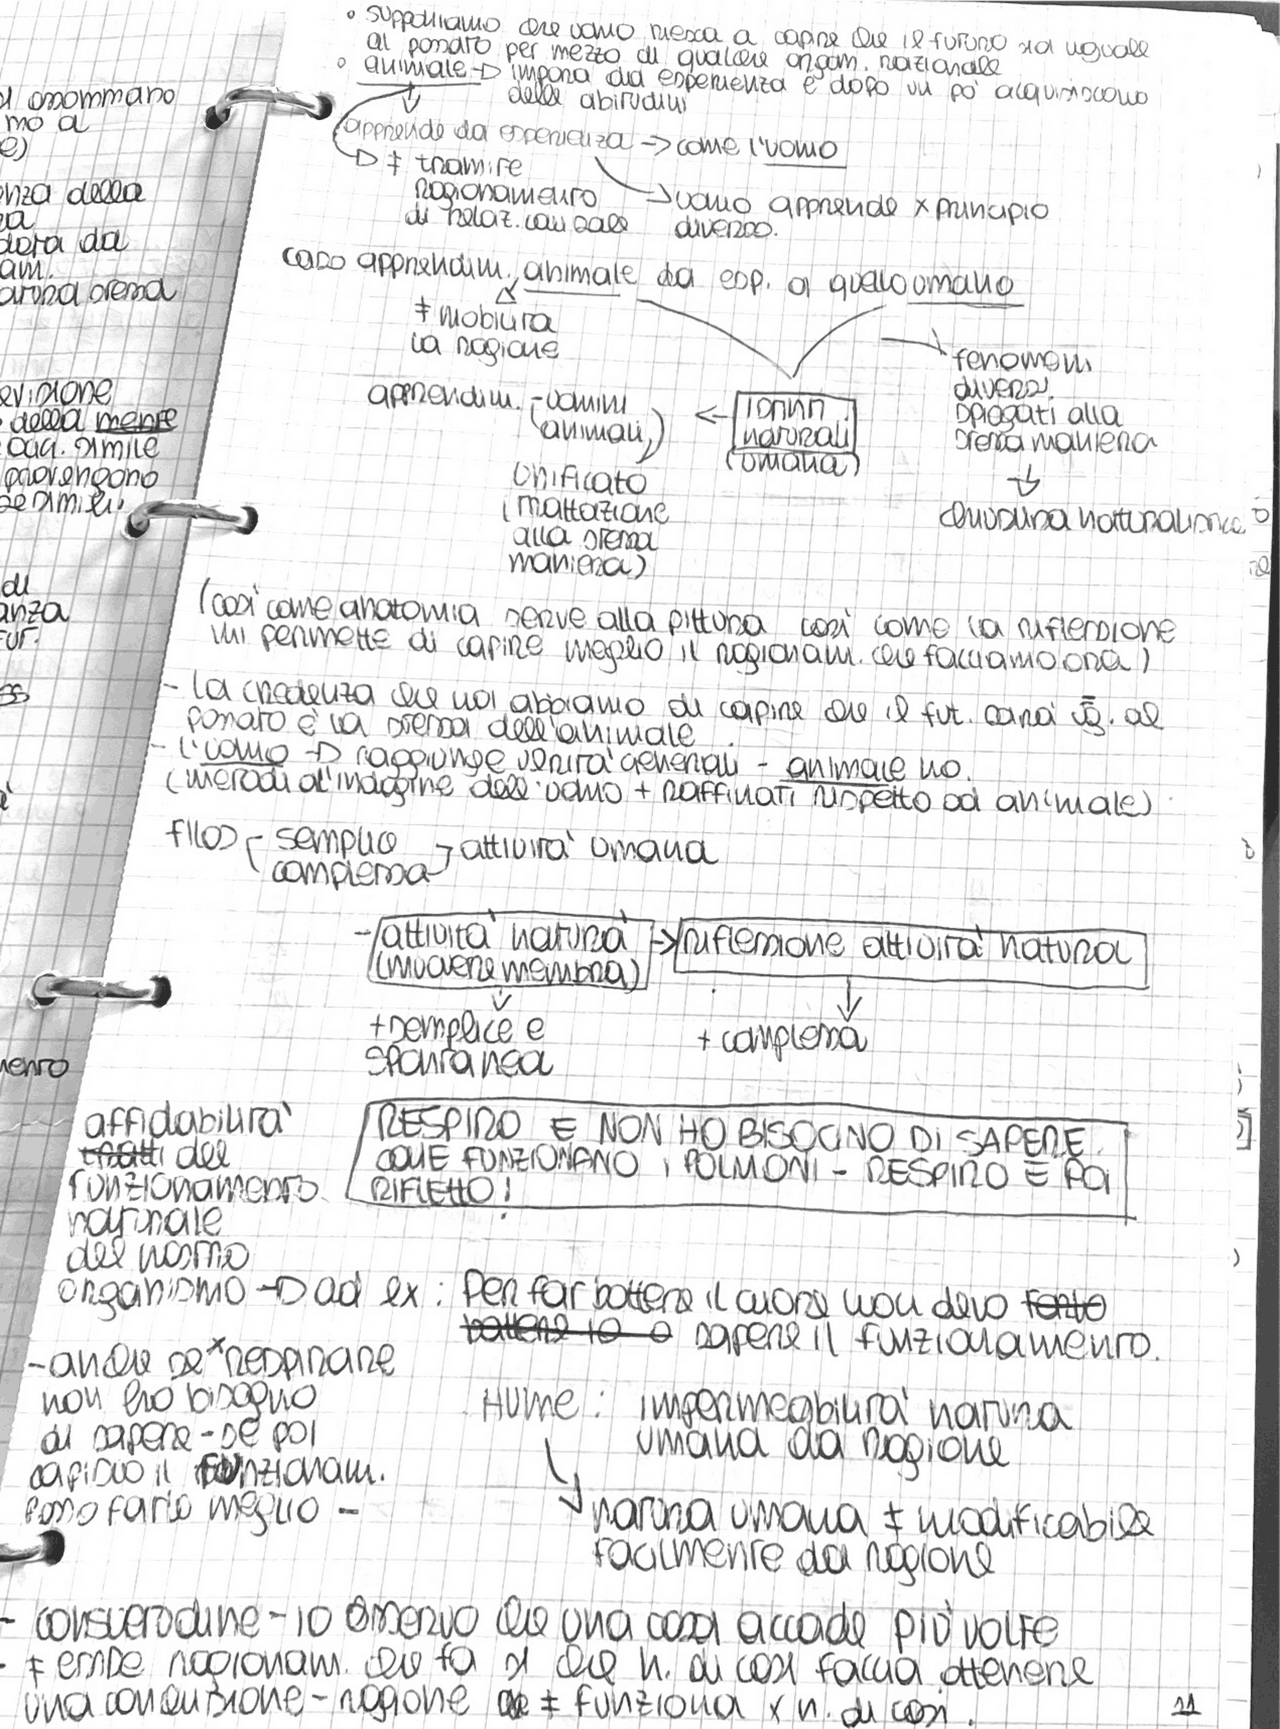 ° supponiamo che uomo riesca a capire che il futuro sia uguale
al passato per mezzo di qualche organ. razionale
° animale → impara da esperienza e dopo un po' acquisiscono
delle abitudini
apprende da esperienza → come l'uomo
→ ≠ tramite
ragionamento
di relaz. causale
→ uomo apprende x principio
diverso.
caso apprendim. animale da esp. a quello umano
≠ mobilita
la ragione
fenomeni
diversi
spiegati alla
stessa maniera
↓
chiusura naturalistica
apprendim. - uomini
(animali,)
← istinti
naturali
(umana)
unificato
(trattazione
alla stessa
maniera)
(così come anatomia serve alla pittura così come la riflessione
mi permette di capire meglio il ragionam. che facciamo ora)
- la credenza che noi abbiamo di capire che il fut. sarà ug. al
passato è la stessa dell'animale
- l'uomo → raggiunge verità generali - animale no.
(metodi d'indagine dell'uomo + raffinati rispetto ad animale)
filos semplice
complessa
attività umana
- attività natura
(muovere membra)
→ riflessione attività natura
↓
+ semplice e
spontanea
↓
+ complessa
affidabilità
del
funzionamento
naturale
del nostro
organismo → ad ex: Per far battere il cuore non devo
sapere il funzionamento.
RESPIRO E NON HO BISOGNO DI SAPERE
COME FUNZIONANO I POLMONI - RESPIRO E POI
RIFLETTO!
- anche se x respirare
non ho bisogno
di sapere - se poi
capisco il funzionam.
posso farlo meglio -
HUME: impermeabilità natura
umana da ragione
natura umana ≠ modificabile
facilmente da ragione
- consuetudine - io osservo che una cosa accade più volte
- ≠ esiste ragionam. che fa sì che n. di casi faccia ottenere
una conclusione - ragione ≠ funziona x n. di casi.
11
di
anza
fut.
della mente
simile
provengono
enza della